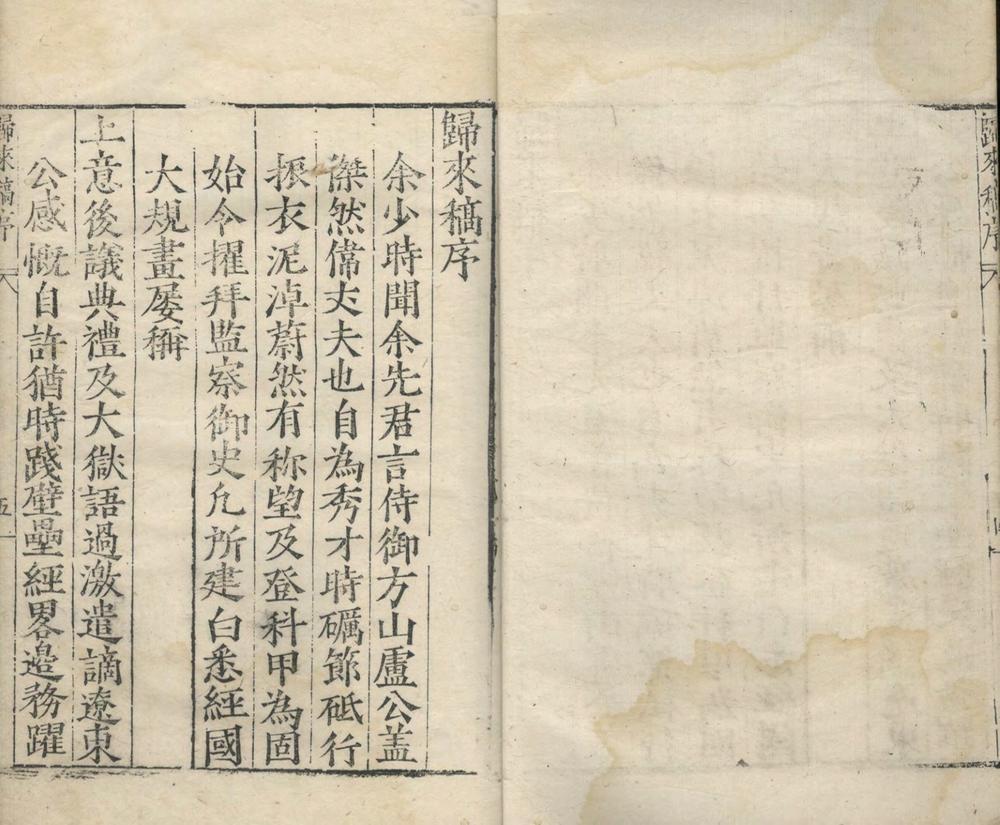 歸來稿序
歸來稿序
余少時聞余先君言侍御方山盧公盖
傑然偉丈夫也自為秀才時礪節砥行
振衣泥淖蔚然有称望及登科甲為固
始令擢拜監察御史凡所建白悉經國
大規畫屡稱
上意後議典禮及大獄語過激遣謫遼東
公感慨自許猶時踐壁壘經畧邉務躍
歸來稿序
五